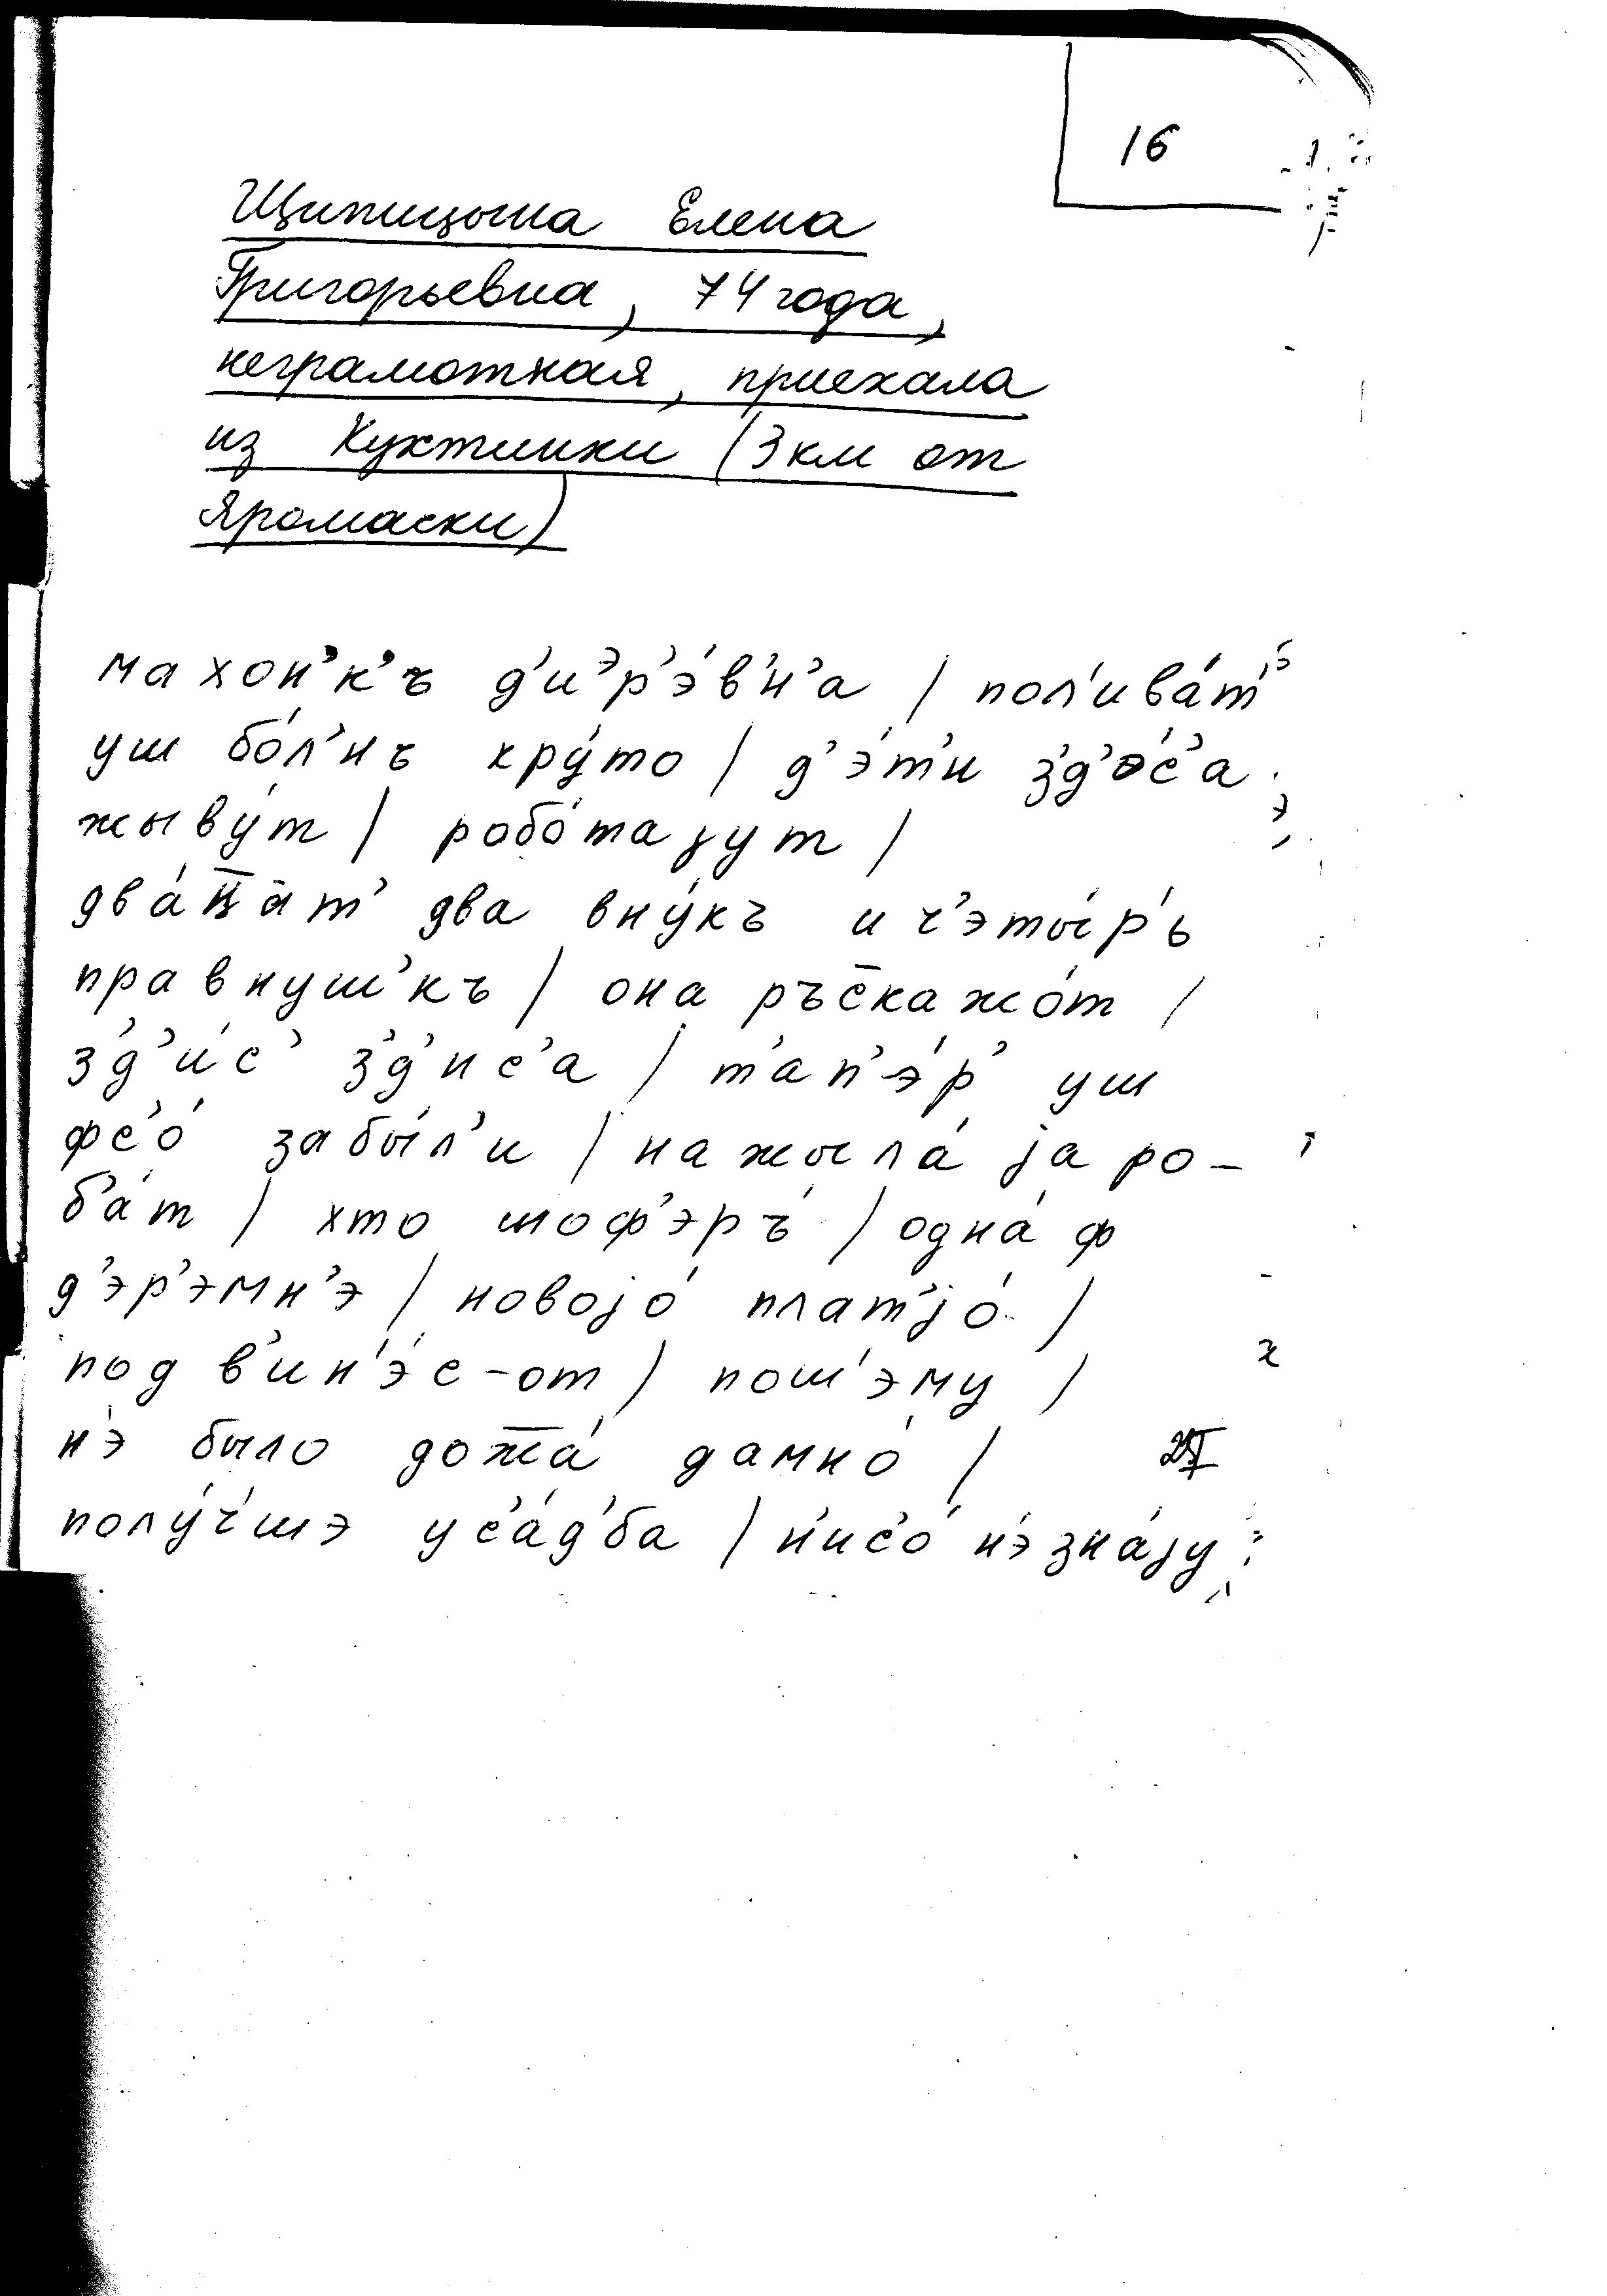 16
Щипицына Елена
Григорьевна, 74 года,
неграмотная, приехала
из Куктинки (3 км от
Яромаски)
махон’к’ъ д’иэр’э́в’н’а / пол’ива́т’
уш бо́л’нъ кру́то / д’э́т’и з’д’э́с’а
жыву́т / робо́таjут /
два́ц̄ат’ два вну́къ и ч’эты́р’ь
правнуш’къ / она ръс̄кажо́т /
з’д’и́с’ з’д’ис’а / т’ап’э́р’ уш
фс’о́ забы́л’и / нажыла́ jа ро-
б’а́т / хто шоф’эръ́ / одна́ ф
д’эр’эмн’э / новоjо́ плат’jо́ /
под в’ин’э́с-от / пош’эму /
н’э было дож̄а́ дамно́ /
полу́ч’шэ ус’а́д’ба / н’ис’о́ н’э зна́jу